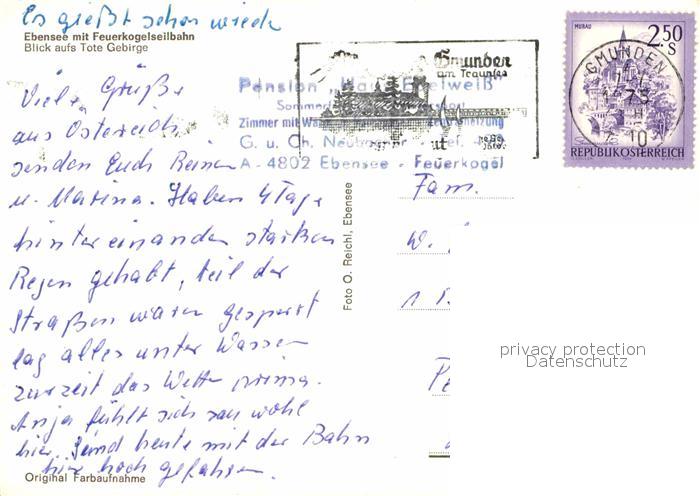 Es gießt schon wieder
Ebensee mit Feuerkogelseilbahn
Blick aufs Tote Gebirge
Viele Grüße
aus Österreich
senden Euch Reiner
u. Marina. Haben 4 Tage
hintereinander starken
Regen gehabt, teil der
Straßen waren gesperrt
lag alles unter Wasser
zurzeit das Wetter prima.
Anja fühlt sich sau wohl
hier. Sind heute mit der Bahn
hier hoch gefahren.
Original Farbaufnahme
Foto O. Reichl, Ebensee
Gmunden
am Traunsee
Pension
Zimmer mit
G. u. Ch.
A - 4802 Ebensee - Feuerkogel
MURAU
2.50
S
GMUNDEN
REPUBLIK ÖSTERREICH
Fam.
W.
privacy protection
Datenschutz